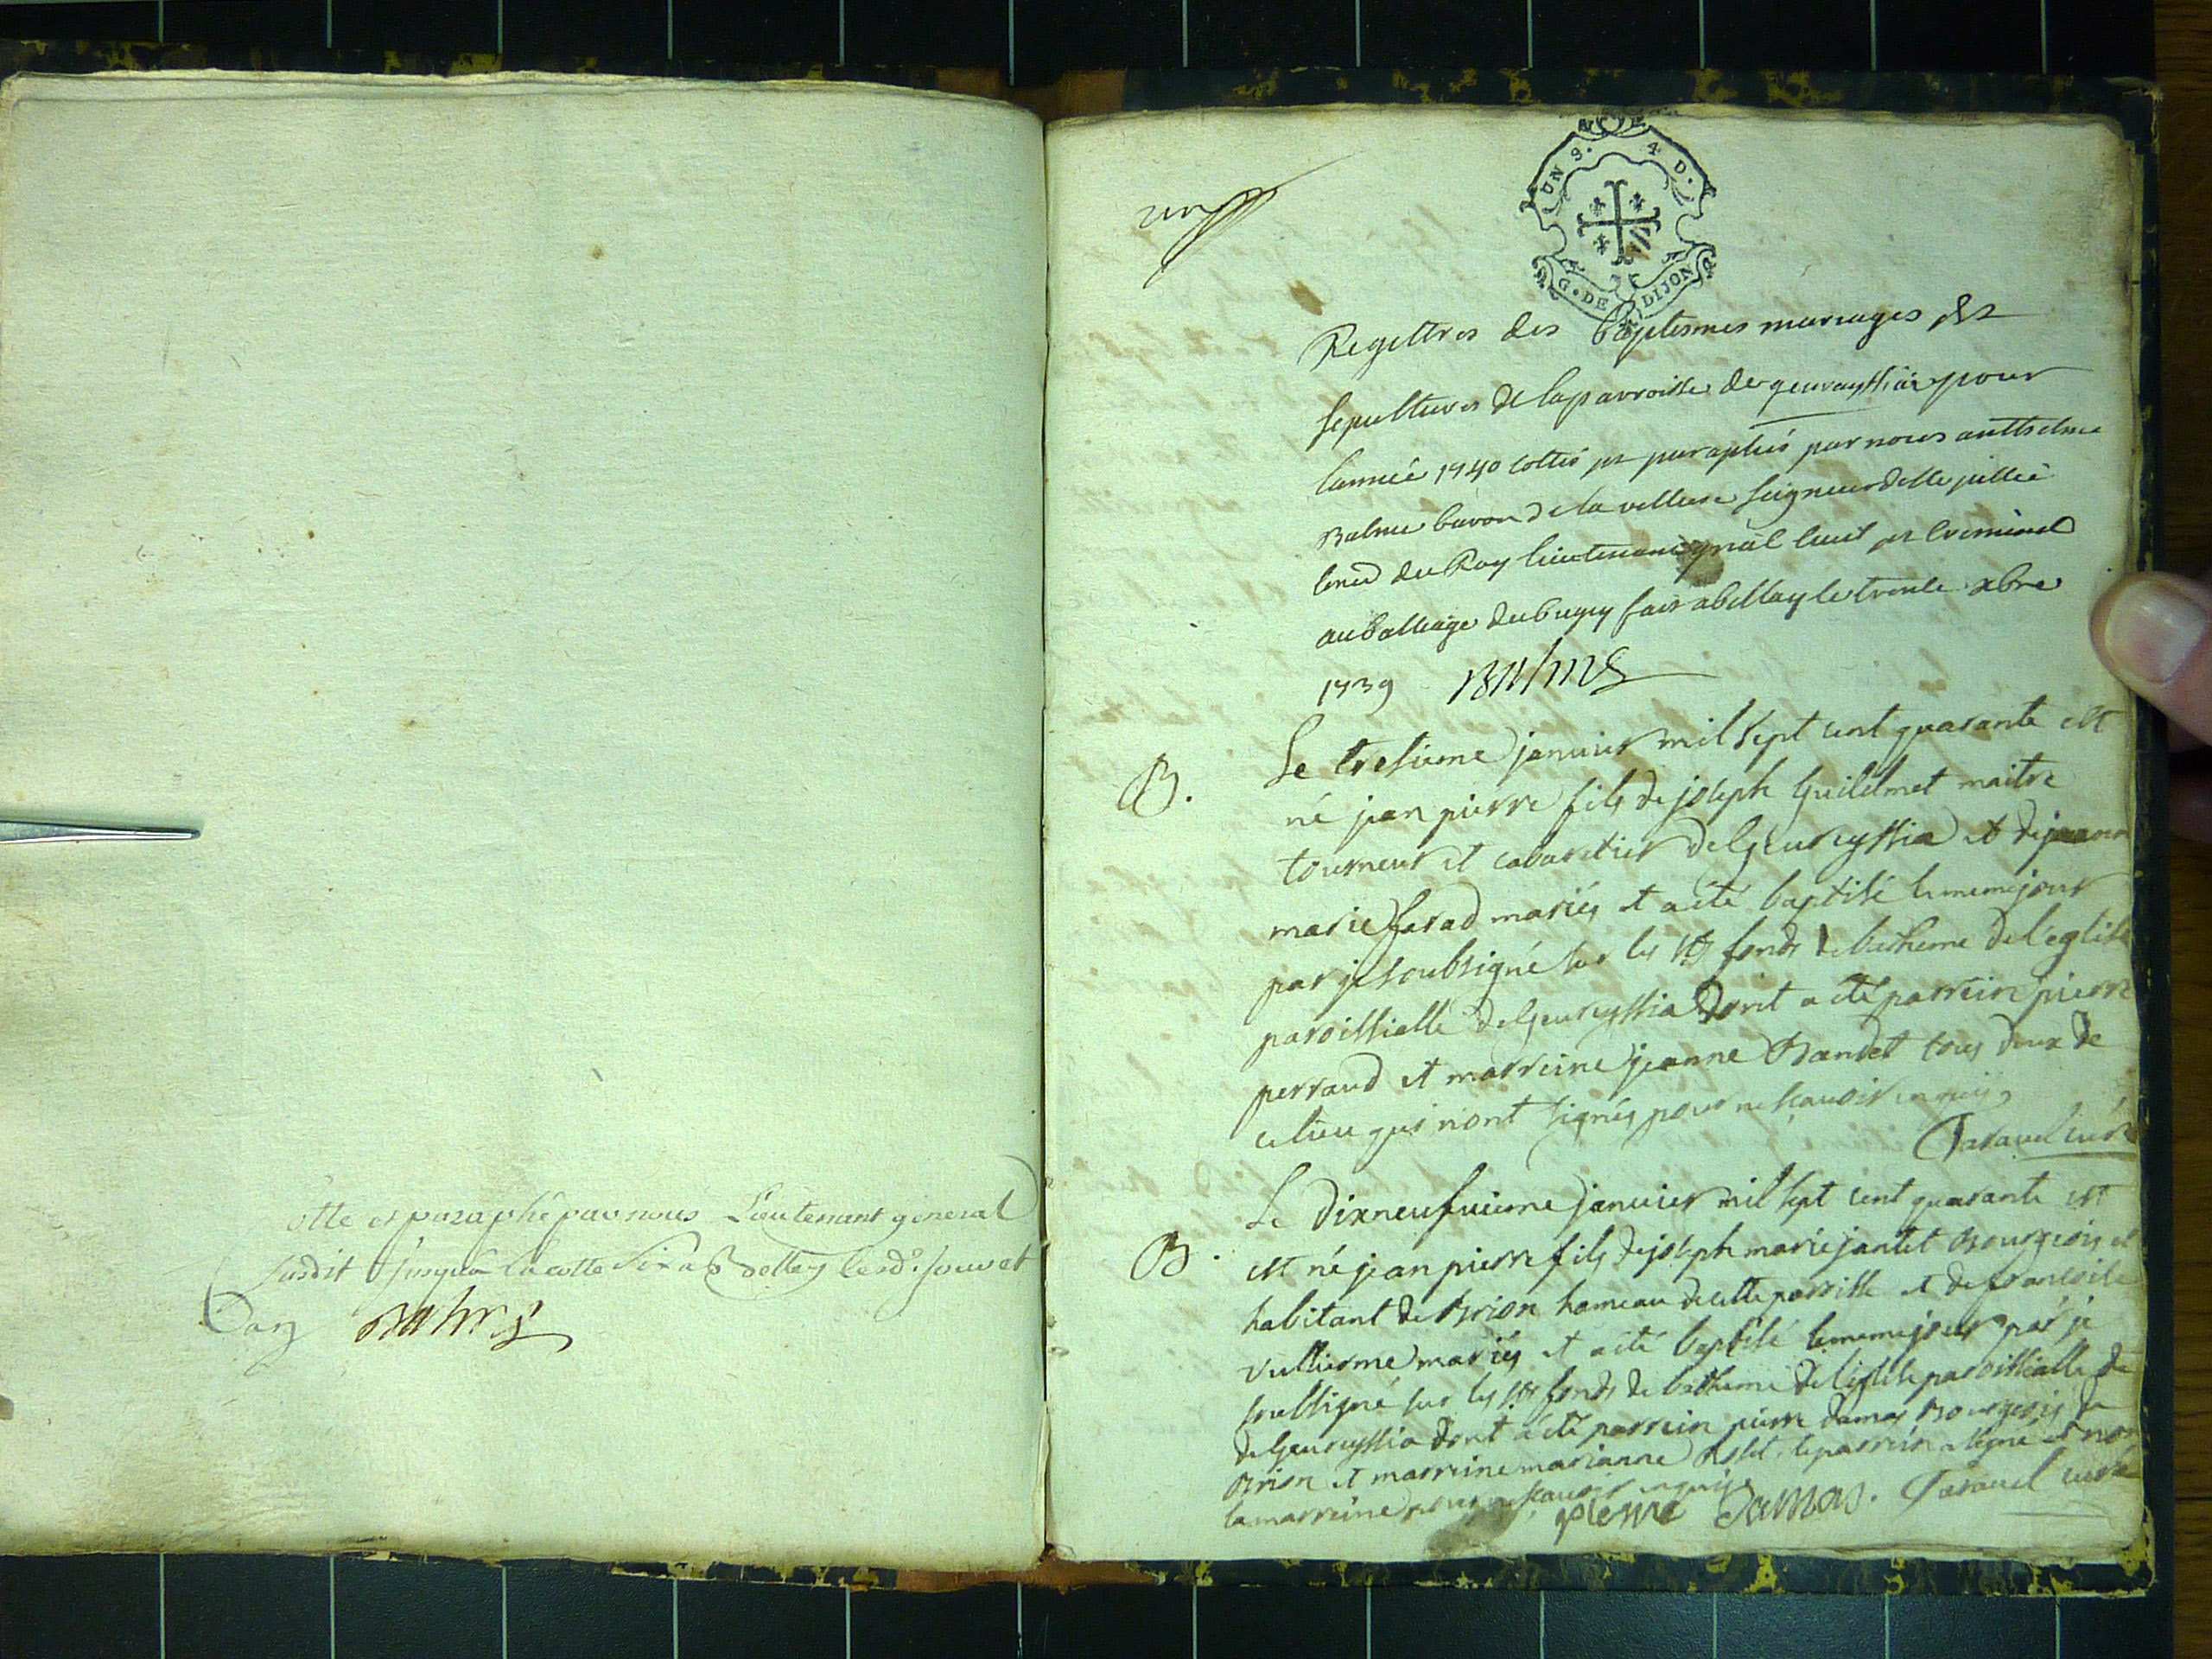 otte et paraphé par nous Lieutenant general
susdit jusqua la cotte Six a Belley lesd. jour et
an Balme
un
UN S. 4 D.
G. DE DIJON
Regettres des Baptesmes mariages et
sepultures de la parroisse de geuraissiat pour
lannée 1740 cottés et paraphés par nous anthelme
Balme baron de la velliere seigneur de Ste jullie
coner du Roy lieutenant gnäl civil et criminel
au balliage du bugey fait a bellay le trente xbre
1739 Balme
B. Le tresieme janvier mil sept cent quarante est
né jean pierre fils de joseph Guilelmet maitre
tourneur et cabaretier de Geureyssia et de jeanne
marie ferad mariés et a été baptisé le meme jour
par je soubsigné sur les sts fonds de batheme de l'eglise
paroissialle de Geureyssia dont a été parrein pierre
perraud et marreine jeanne Bandet tous deux de
ce lieu qui n'ont signés pour ne sçavoir enquis
Paravel curé
B. Le dixneufvieme janvier mil sept cent quarante est
est né jean pierre fils de joseph marie jantet Bourgeois et
habitant de Brion hameau de cette parroisse et de francoise
vullierme mariés et a été baptisé le meme jour par je
soubsigné sur les sts fonds de batheme de l'eglise paroissialle de
de Geureyssia dont a été parrein pierre damas Bourgeois de
Brion et marreine marianne Rolet le parrein a signé et non
la marreine pour ne sçavoir enquise
pierre damas. Paravel curé